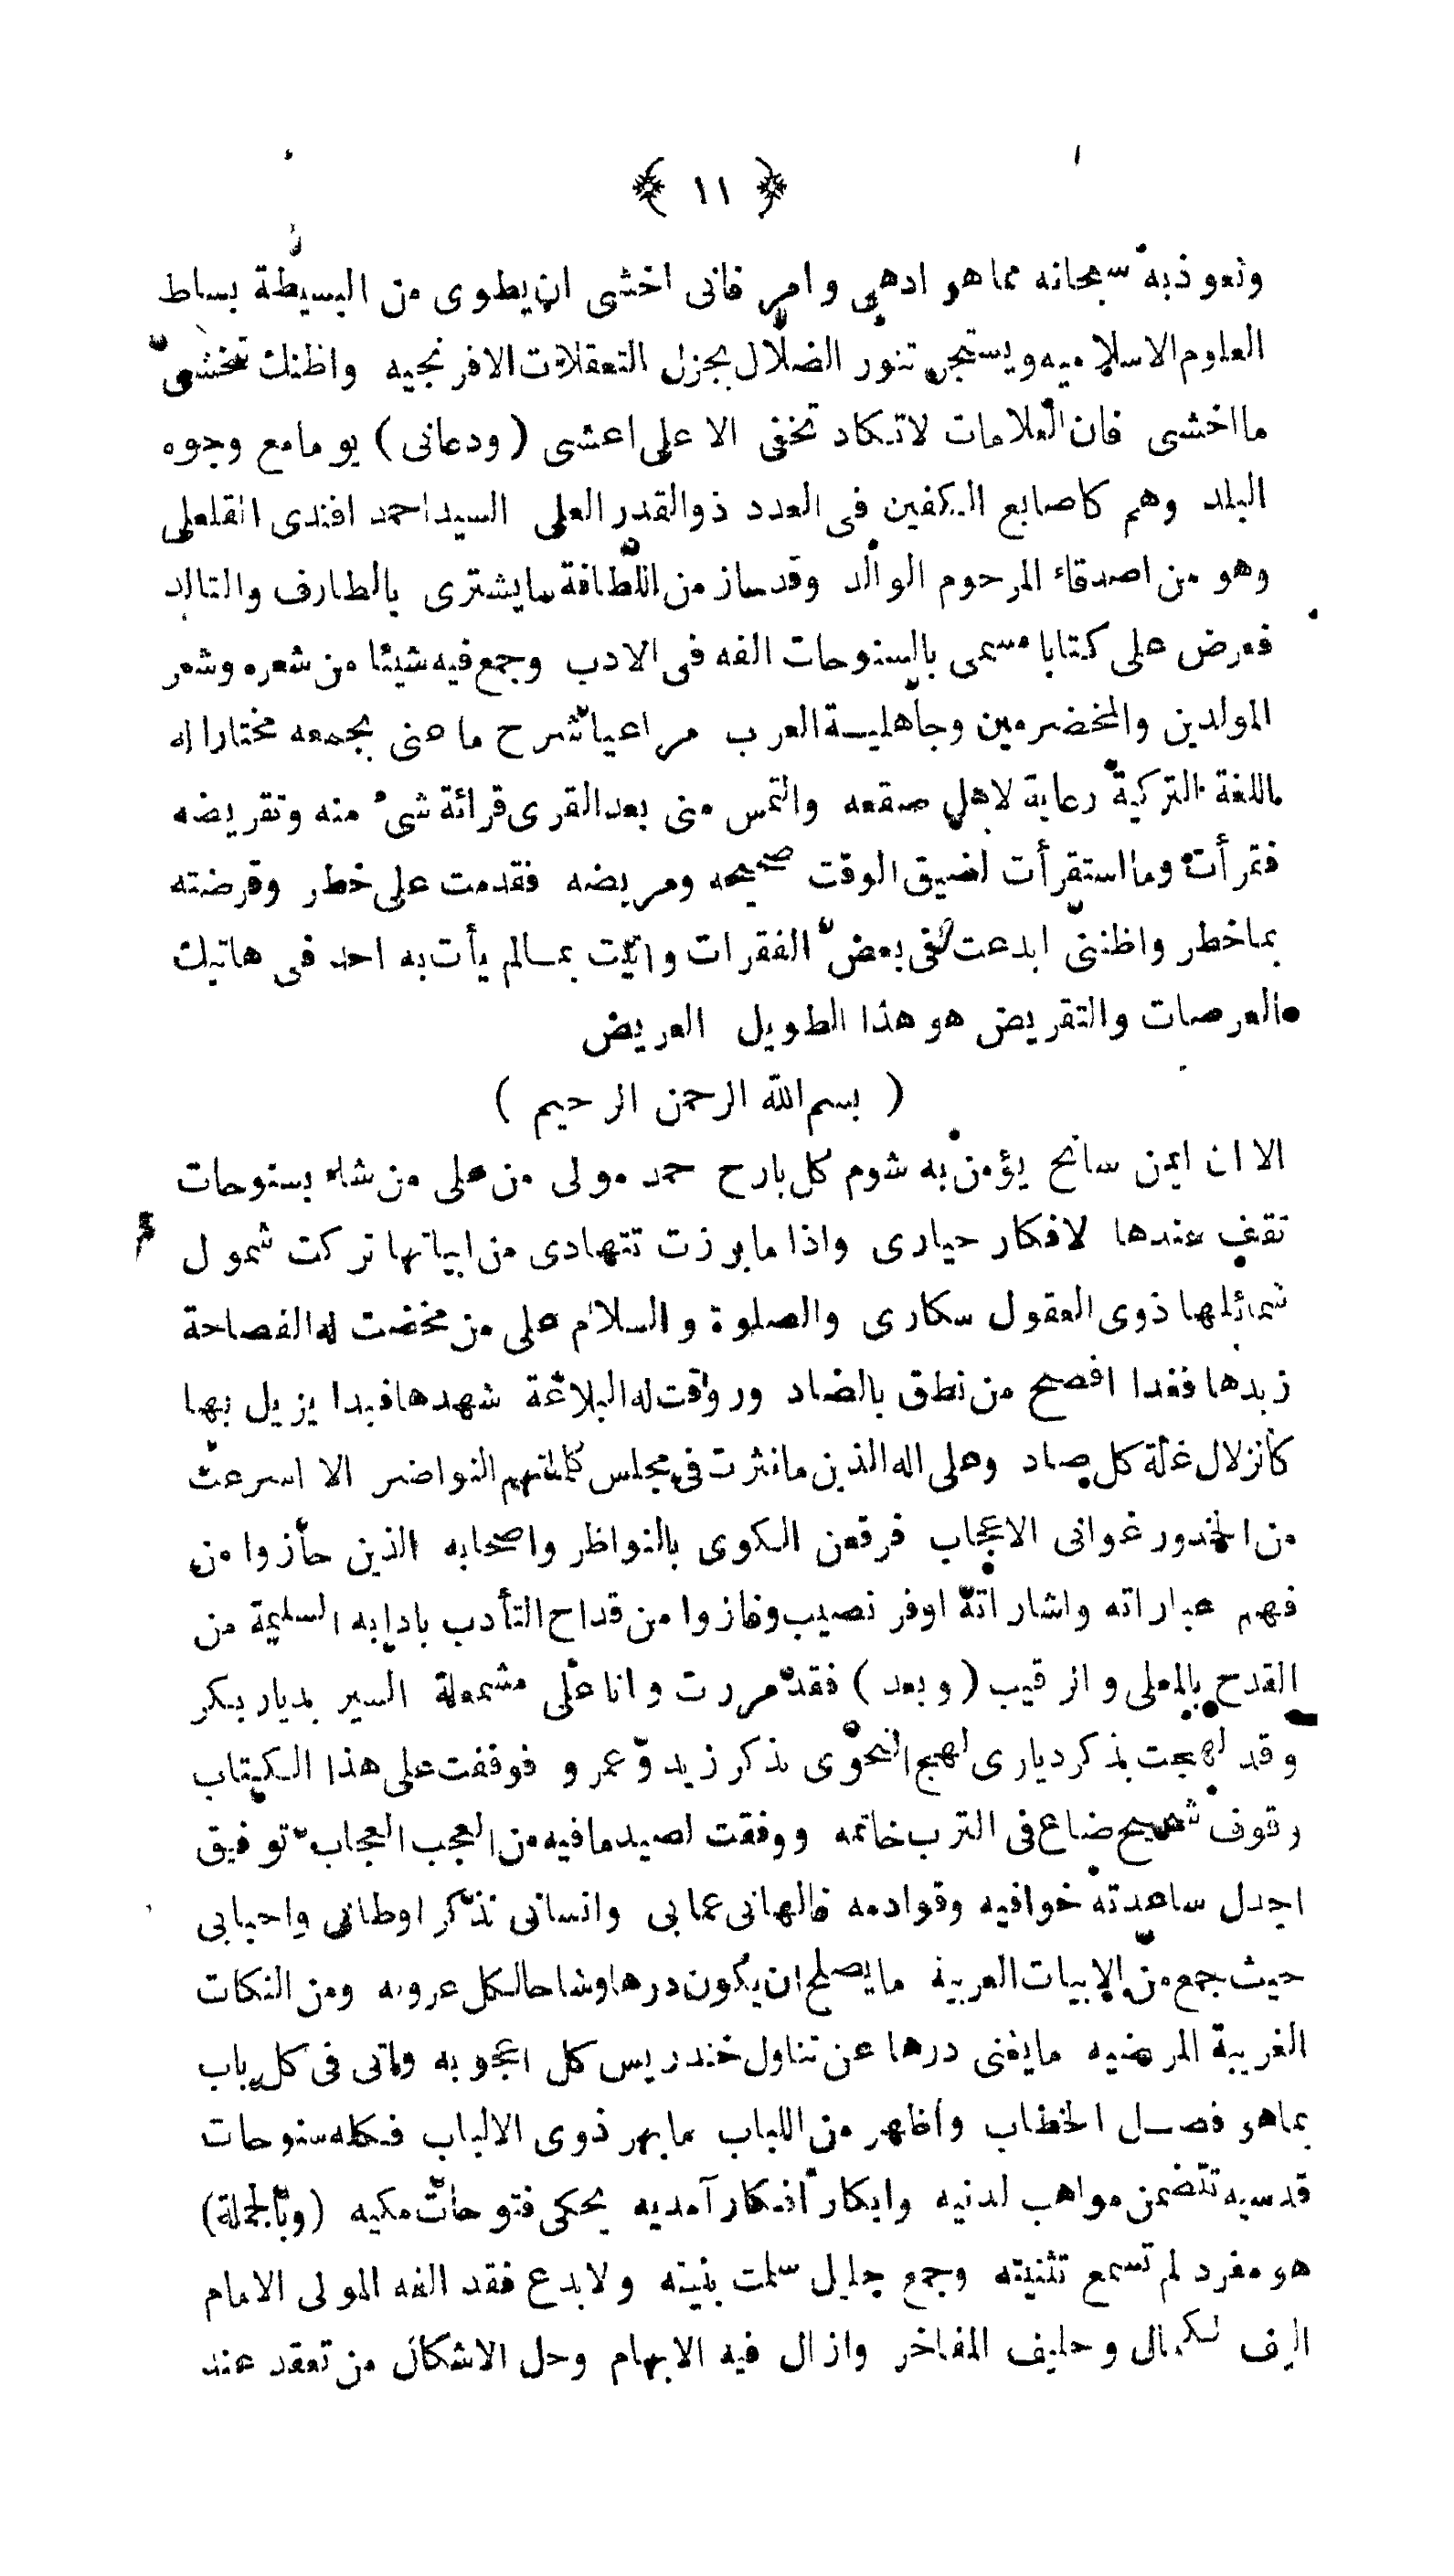 ﴿ ١١ ﴾
ونعوذ به سبحانه مما هو ادهى وامر فانى اخشى ان يطوى من البسيطة بساط
العلوم الاسلاميه ويستجر تنور الضلال بجزل التعقلات الافرنجيه واظنك تخشى
ما اخشى فان العلامات لا تكاد تخفى الا على اعشى (ودعانى) يوما مع وجوه
البلد وهم كاصابع الكفين فى العدد ذو القدر العلى السيد احمد افندى القلعلى
وهو من اصدقاء المرحوم الوالد وقد ساز من اللطافة ما يشترى بالطارف والتالد
فعرض على كتابا مسمى بالسنوحات الفه فى الادب وجمع فيه شيئا من شعره وشعر
المولدين والمخضرمين وجاهلية العرب مراعيا شرح ما عنى بجمعه مختارا له
باللغة التركية رعاية لاهل صقعه والتمس منى بعد القرى قرائة شىء منه وتقريضه
فقرأت وما استقرأت لضيق الوقت صحيحه ومريضه فقدمت على خطر وقرضته
بما خطر واظننى ابدعت فى بعض الفقرات واتيت بما لم يأت به احد فى هاتيك
العرصات والتقريض هو هذا الطويل العريض
( بسم الله الرحمن الرحيم )
الا ان ايمن سانح يؤمن به شوم كل بارح حمد مولى من على من شاء بسنوحات
تقف عندها لافكار حيارى واذا ما برزت تتهادى من ابياتها تركت شمول
شمائلها ذوى العقول سكارى والصلوة والسلام على من مخضت له الفصاحة
زبدها فغدا افصح من نطق بالضاد وروقت له البلاغة شهدها فبدا يزيل بها
كالزلال غلة كل صاد وعلى اله الذين ما نثرت فى مجلس كلماتهم النواضر الا اسرعت
من الخدور غوانى الاعجاب فرقعن الكوى بالنواظر واصحابه الذين حازوا من
فهم عباراته واشاراته اوفر نصيب وفازوا من قداح التأدب بادابه السليمة من
القدح بالمعلى والرقيب (وبعد) فقد مررت وانا على مشمعلة السير بديار بكر
وقد لهجت بذكر ديارى لهج النحوى بذكر زيد وعمرو فوقفت على هذا الكتاب
وقوف شحيح ضاع فى الترب خاتمه ووفقت لصيد ما فيه من العجب العجاب توفيق
اجدل ساعدته خوافيه وقوادمه فالهانى عما بى وانسانى تذكر اوطانى واحبابى
حيث جمع من الابيات العربية ما يصلح ان يكون درها وشاحا لكل عروبه ومن النكات
الغريبة المرضيه ما يغنى درها عن تناول خندريس كل اعجوبه واتى فى كل باب
بما هو فصل الخطاب واظهر من اللباب ما بهر ذوى الالباب فكله سنوحات
قدسيه تتضمن مواهب لدنيه وابكار افكار آمديه يحكى فتوحات مكيه (وبالجملة)
هو مفرد لم تسمع تثنيته وجمع جليل سلمت بنيته ولا بدع فقد الفه المولى الامام
اليف المعالى وحليف المفاخر وازال فيه الابهام وحل الاشكال من تعقد عند